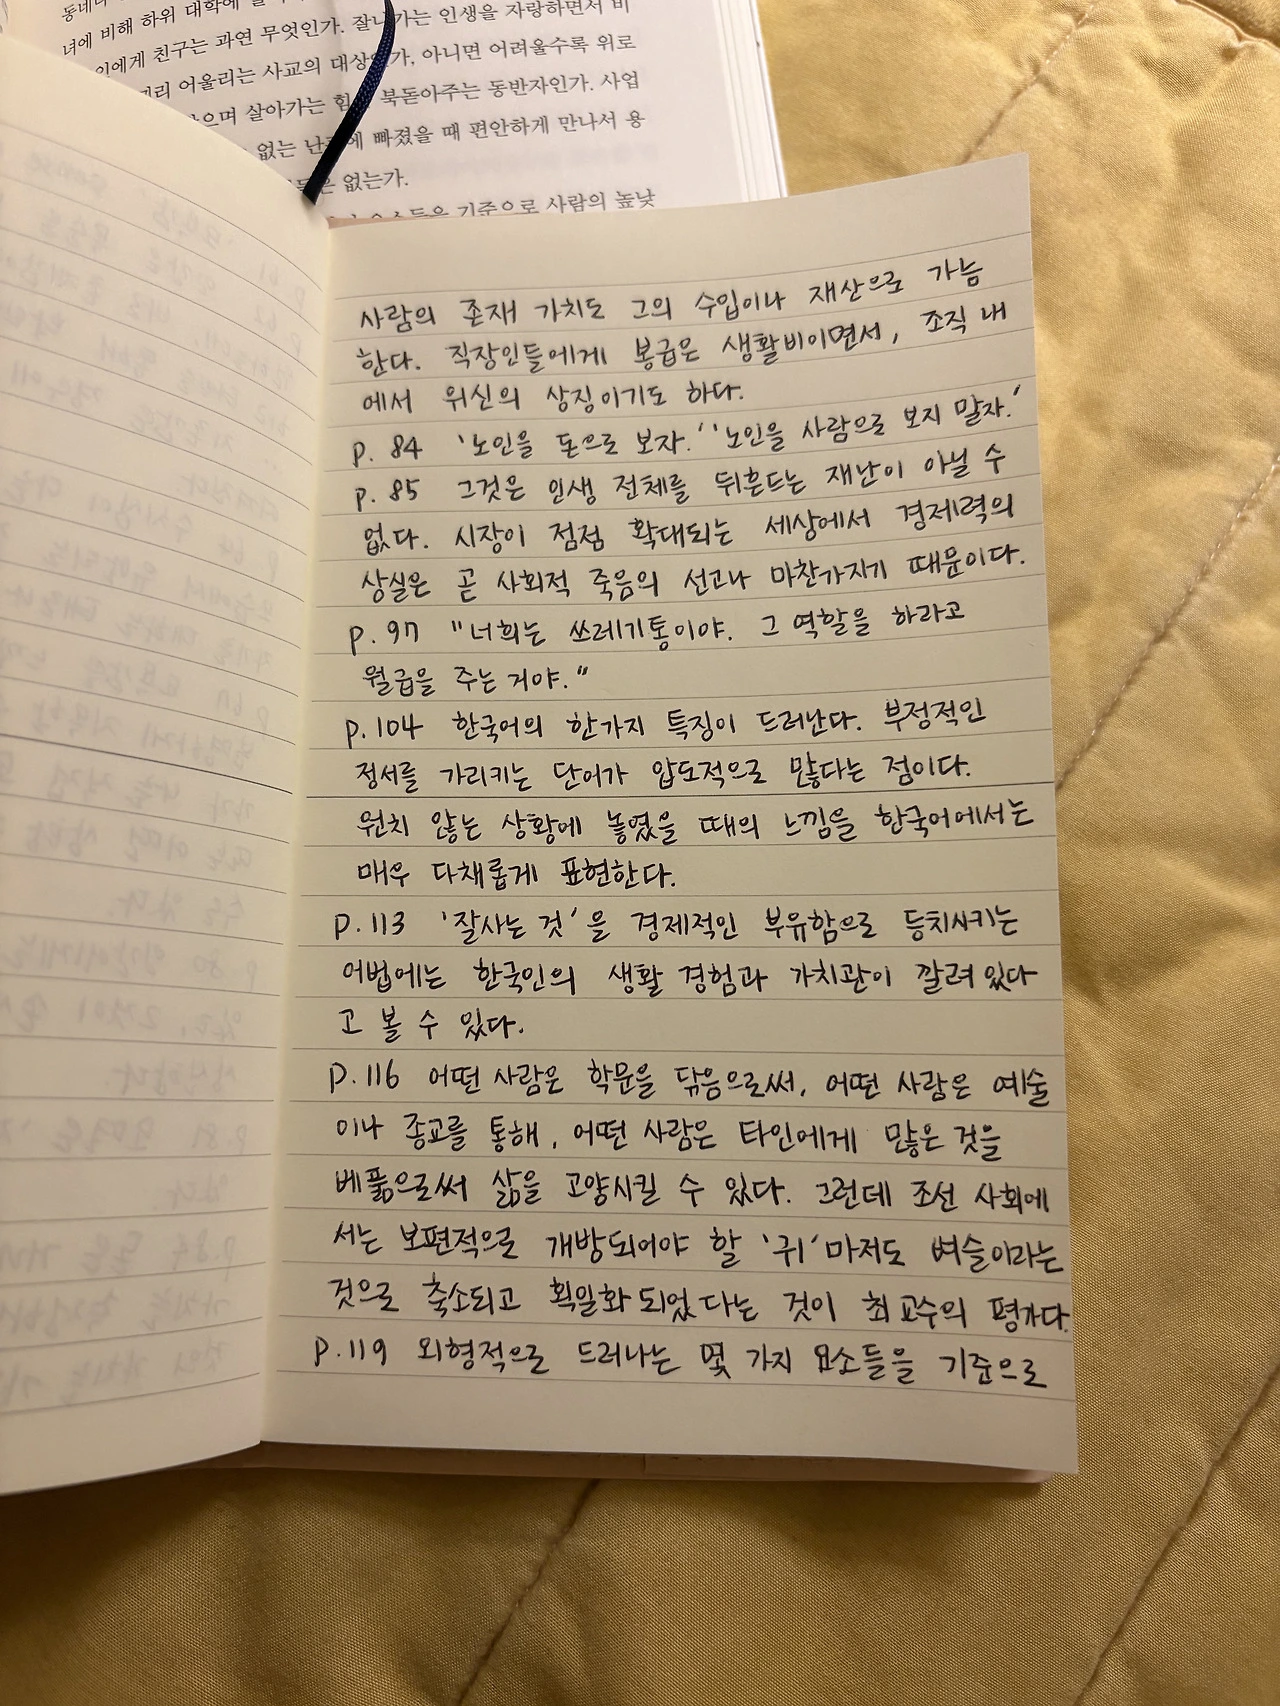 너에 비해 하위 대학에
인에게 친구는 과연 무엇인가. 잘나가는 인생을 자랑하면서 비
어울리는 사교의 대상인가, 아니면 어려울수록 위로
으며 살아가는 힘 북돋아주는 동반자인가. 사업
없는 난 에 빠졌을 때 편안하게 만나서 용
은 없는가.
기준으로 사람의 높낮
사람의 존재 가치도 그의 수입이나 재산으로 가늠
한다. 직장인들에게 봉급은 생활비이면서, 조직 내
에서 위신의 상징이기도 하다.
p. 84 '노인을 돈으로 보자.' '노인을 사람으로 보지 말자.'
p. 85 그것은 인생 전체를 뒤흔드는 재난이 아닐 수
없다. 시장이 점점 확대되는 세상에서 경제력의
상실은 곧 사회적 죽음의 선고나 마찬가지기 때문이다.
p. 97 "너희는 쓰레기통이야. 그 역할을 하라고
월급을 주는 거야."
p. 104 한국어의 한가지 특징이 드러난다. 부정적인
정서를 가리키는 단어가 압도적으로 많다는 점이다.
원치 않는 상황에 놓였을 때의 느낌을 한국어에서는
매우 다채롭게 표현한다.
p. 113 '잘사는 것'을 경제적인 부유함으로 등치시키는
어법에는 한국인의 생활 경험과 가치관이 깔려 있다
고 볼 수 있다.
p. 116 어떤 사람은 학문을 닦음으로써, 어떤 사람은 예술
이나 종교를 통해, 어떤 사람은 타인에게 많은 것을
베풂으로써 삶을 고양시킬 수 있다. 그런데 조선 사회에
서는 보편적으로 개방되어야 할 '귀'마저도 벼슬이라는
것으로 축소되고 획일화 되었다는 것이 최 교수의 평가다.
p. 119 외형적으로 드러나는 몇 가지 요소들을 기준으로